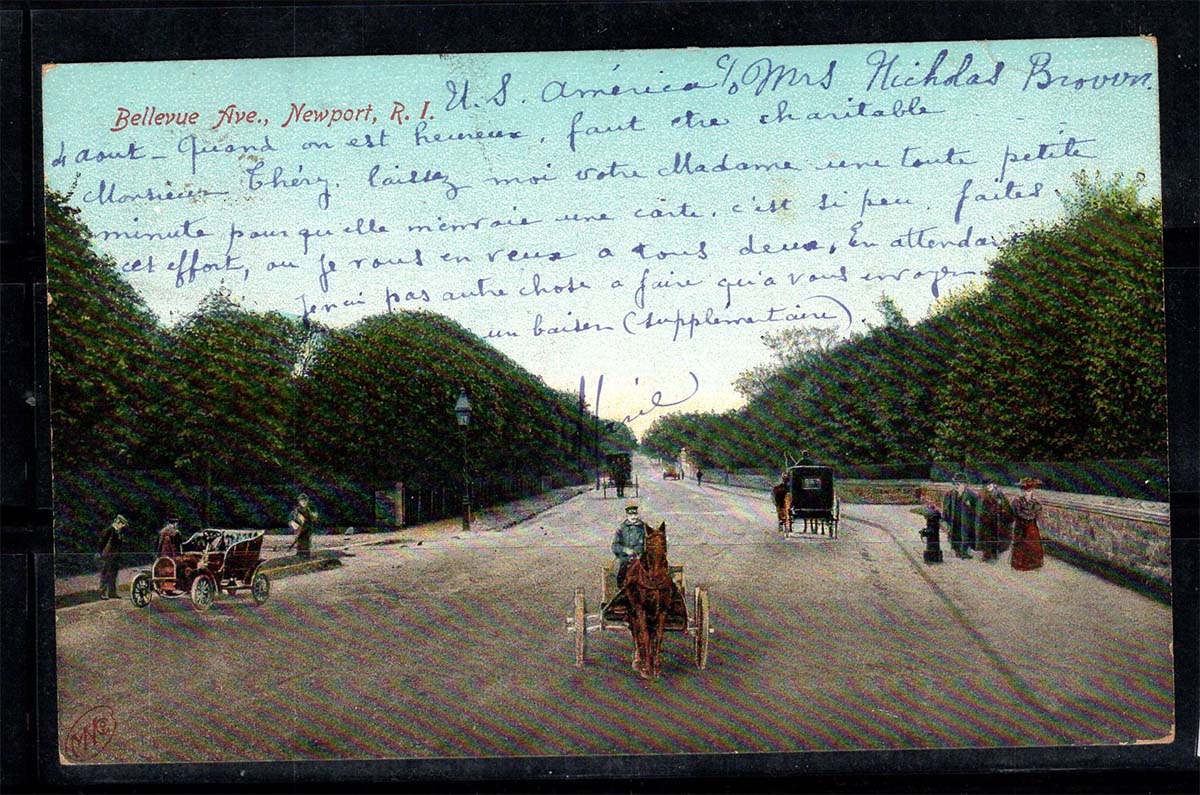 U. S. América c/o Mrs Nicholas Brown.
Bellevue Ave., Newport, R. I.
4 aout - Quand on est heureux, faut etre charitable
Monsieur Théry, laissez moi votre Madame une toute petite
minute pour qu'elle m'envoie une carte, c'est si peu, faites
cet effort, ou je vous en veux a tous deux, En attendant
je n'ai pas autre chose a faire qu'a vous envoyer
un baiser (supplementaire).